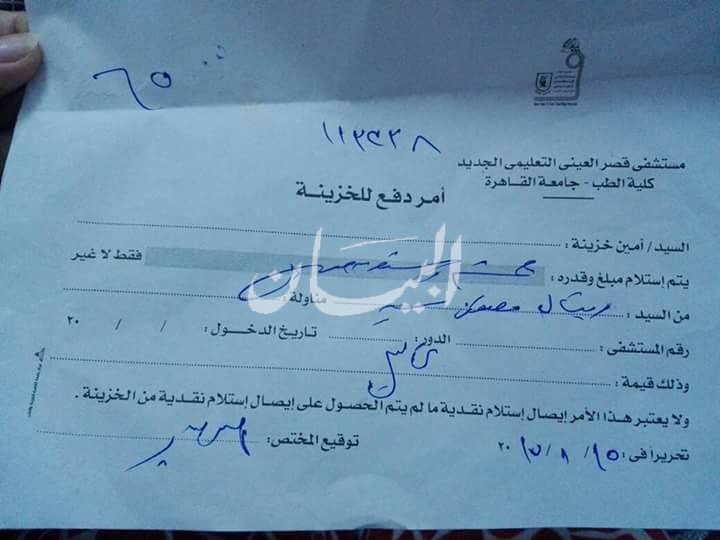 ٦٥
١١٣٤٣٨
مستشفى قصر العينى التعليمى الجديد
كلية الطب - جامعة القاهرة
أمر دفع للخزينة
السيد/ أمين خزينة :
يتم إستلام مبلغ وقدره : فقط لا غير
البيان
من السيد : مناولة :
رقم المستشفى : الدور: تاريخ الدخول : / / ٢٠
وذلك قيمة :
ولا يعتبر هذا الأمر إيصال إستلام نقدية ما لم يتم الحصول على إيصال إستلام نقدية من الخزينة .
تحريراً فى : ١٥ / ٨ / ٢٠١٧ توقيع المختص :